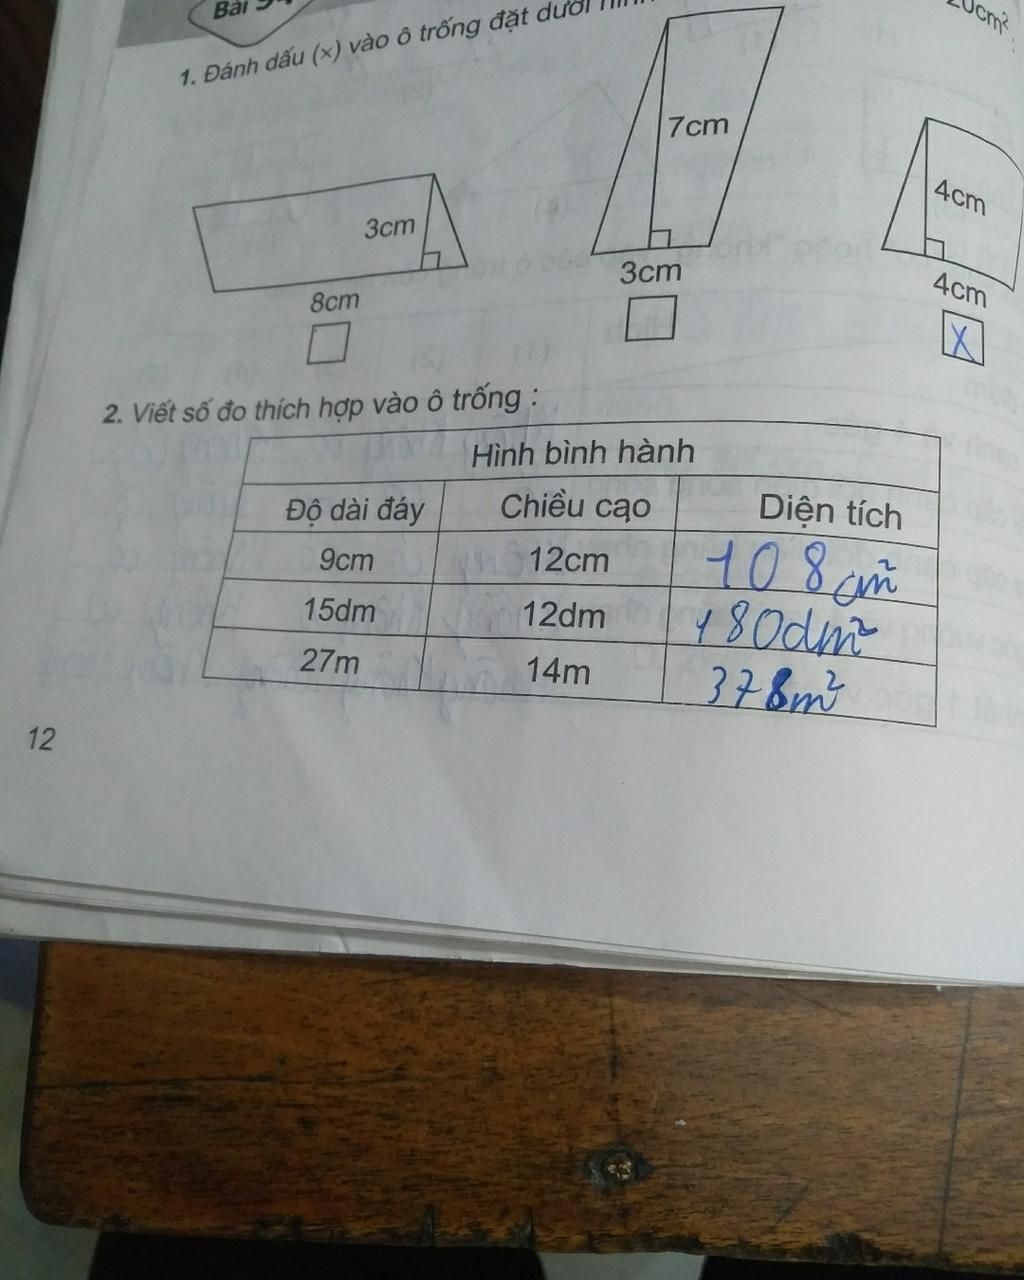 Bài
20cm²
1. Đánh dấu (×) vào ô trống đặt dưới
3cm
7cm
4cm
8cm
3cm
4cm
x
2. Viết số đo thích hợp vào ô trống :
Hình bình hành
Độ dài đáy Chiều cao Diện tích
9cm 12cm 108cm²
15dm 12dm 180dm²
27m 14m 378m²
12